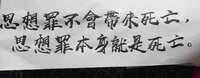 思想罪不會帶來死亡,
思想罪本身就是死亡。